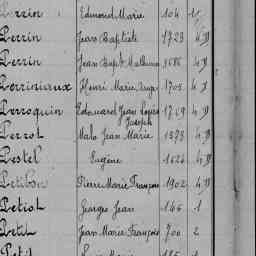 Perrin Edmond Marie 104 1
Perrin Jean Baptiste 1723 4 D
Perrin Jean Bapt. 1686 4 D
Perriniaux Henri Marie 1705 4 D
Perroquin Edouard Jean Louis Joseph 1769 4 D
Perrot Malo Jean Marie 1373 4 D
Pestel Eugène 1626 4 D
Petibon Pierre Marie François 1902 4 D
Petiot Georges Jean 146 1
Petit Jean Marie François 700 2
Petit